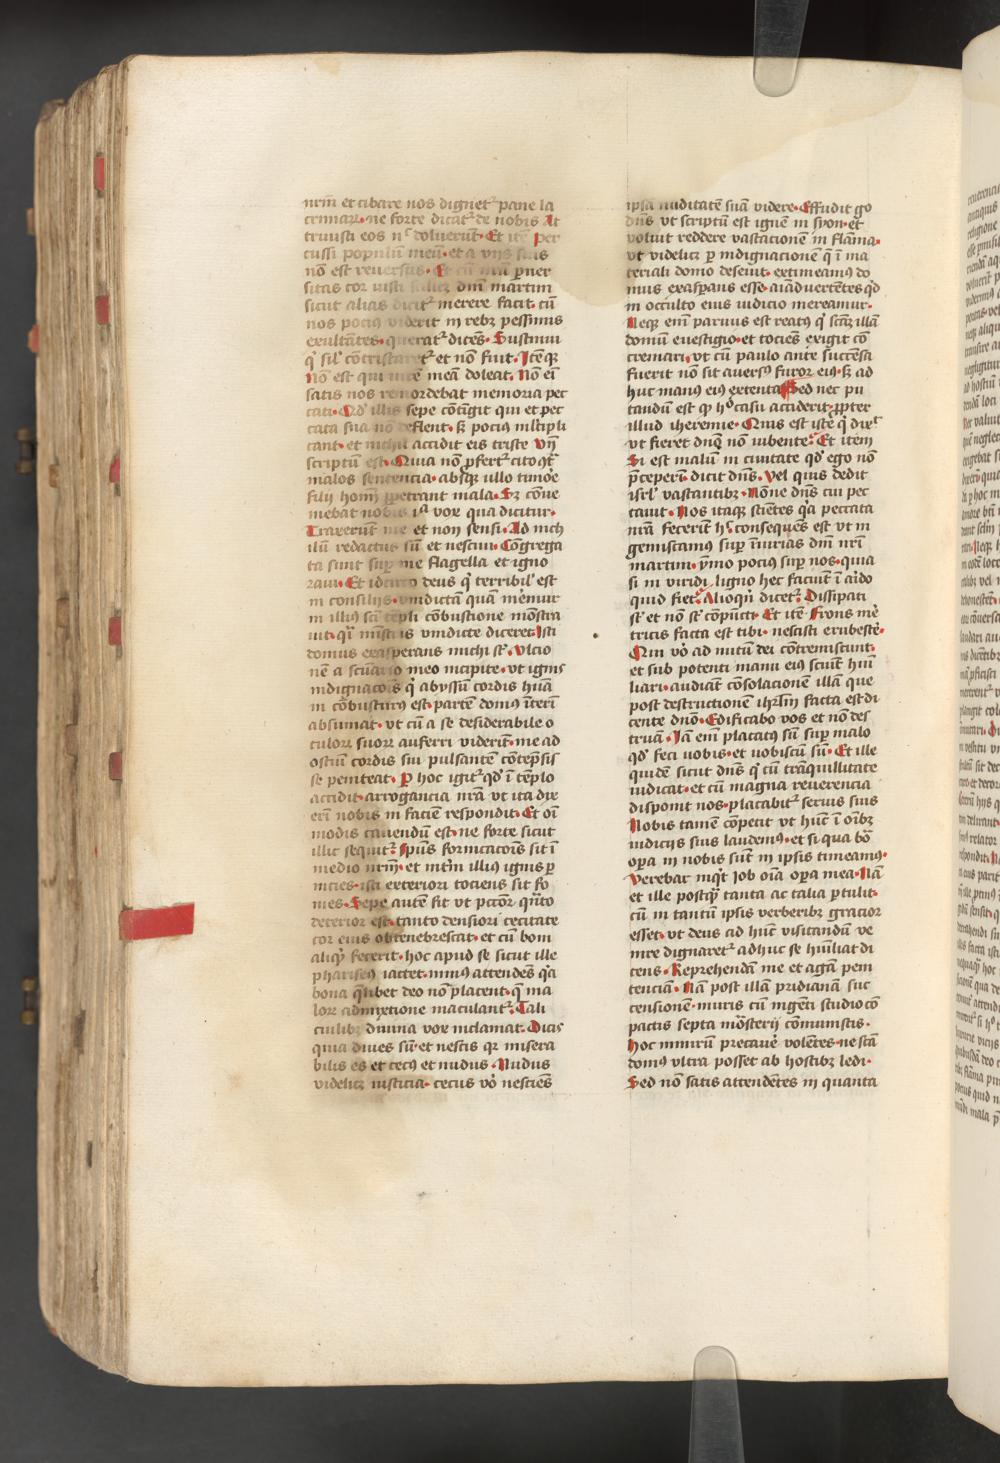 nr̄m et cibare nos dignet᷑ pane la
crimar᷑· ne forte dicat᷑ de nobis At
triuisti eos ⁊ n᷒ doluerūt· Et itē per
cussi populum meū· et a vijs suis
nō est reuersus· Et cū
sitas cor iusti dnī martini
sicut alias dicit᷑ merere facit· cū
nos pociꝰ viderit in rebꝫ pessimis
exultātes· querat᷑ dicēs· Sustinui
q̇ sil̓ cōtristaret᷑ et nō fuit· Itēqꝫ
Nō est qui vicē meā doleat· Nō eī
satis nos remordebat memoria pec
cati· Qd̓ illis sepe cōtīgit qui et pec
cata sua nō deflent· sꝫ pociꝰ ml̓tipli
cant· et nichil accidit eis triste Vn̄
scriptū est· Quia nō ꝓfert᷑ cito ꝯt᷑
malos sentencia· absqꝫ ullo timōe
filij homī ꝑpetrant mala· Sꝫ cōue
niebat nobis iᵃ vox qua dicitur·
Traxerunt me et non sensi· Ad nich
ilū redactus sū et nesciui· Cōgrega
ta sunt sup̱ me flagella et igno
raui· Et idcirco deus q̇ terribil̓ est
in consilijs· vindictā quā mēmur
in illiꝰ scī tēpli cōbustione mōstra
uit· q̄ꝫ mīstris vindicte diceret· Isti
domus exasperans michi st̄· Vlcio
nē a scūario meo incipite· vt ignis
indignacōis q̇ abyssū cordis hūā
in cōbusturꝰ est· partē domꝰ īterī
absumat· vt cū a se desiderabile o
culor᷑ suor᷑ auferri viderit· me ad
ostiū cordis sui pulsantē cōtēpsis
se peniteat· ꝑ hoc igit᷑ qd̓ ī tēplo
accidit· arrogancia nr̄a vt ita dix
erī nobis in faciē respondit· Et oī
modis cauendū est· ne forte sicut
illic sequit᷑· Spūs fornicacōis sit ī
medio nr̄m· et mt̄m illiꝰ ignis ꝑ
nicies· isti exteriori tociens sit fo
mes· Sepe autē fit vt pccōr q̇nto
deterior est· tanto densiori cecitate
cor eius obtenebrescat· et cū boni
aliqͥ fecerit· hoc apud se sicut ille
phariseꝰ iactet· minꝰ attendēs qͣ
bona q̄libet deo nō placent· q̄ ma
lor᷑ admixtione maculant᷑· Tali
cuilibꝫ diuina vox inclamat· Dicis
quia diues sū· et nescis qꝫ misera
bilis es et cecꝰ et nudus· Nudus
videlicꝫ iusticia· cecus vo̓ nesciēs
ipsā nuditatē suā videre· Effudit go
dn̄s vt scriptū est ignē in syon· et
voluit reddere vastacionē in flāma·
vt videlicꝫ ꝑ indignacionē q̄ ī ma
teriali domo deseuit· extimeamꝰ do
mus exasꝑans esse· aīaduertētes qd̓
in occulto eius iudicio mereamur·
Neqꝫ enī paruus est reatꝰ q̇ scāꝫ illā
domū euestigio· et tociēs exigit cō
cremari· vt cū paulo ante succēsa
fuerit nō sit auersꝰ furor eiꝰ· sꝫ ad
huc manꝰ eiꝰ extenta· Sed nec pu
tandū est ꝙ hᵒ casu acciderit· ꝓpter
illud iheremie· Quis est iste q̇ dix᷑
vt fieret dn̄o nō iubente· Et itēm
Si est malū in ciuitate qd̓ ego nō
p̄ceperī dicit dn̄s· Vel quis dedit
isrl̓ vastantibꝫ· Nōne dn̄s cui pec
cauit· Nos itaqꝫ sciētes qͣ peccata
nr̄a fecerūt hᶜ consequēs est vt in
gemiscamꝰ sup̱ īiurias dnī nrī
martini· ymo pociꝰ sup̱ nos· quia
si in viridi ligno hec faciūt ī arido
quid fiet· Alioqn̄ dicet᷑· Dissipati
st̄ et nō st̄ cōpūcti· Et itē Frons mē
tricis facta est tibi· nescisti erubescē·
Qui vo̓ ad nutū dei cōtremiscunt·
et sub potenti manu eiꝰ sciūt hūi
liari· audiāt cōsolacionē illā que
post destructionē ihrlm̄ facta est di
cente dn̄o· Edificabo vos et nō des
truā· Iā enī placatꝰ sū sup̱ malo
qd̓ feci uobis· et uobiscū sū· Et ille
quidē sicut dn̄s q̇ cū trāquillitate
iudicat· et cū magna reuerencia
disponit nos· placabit᷑ seruis suis
Nobis tamē cōpetit vt hūc ī oībꝫ
iudicijs suis laudemꝰ· et si qua bō
oꝑa in nobis sūt in ipsis timeamꝰ·
Verebar inq̇t Iob oīa oꝑa mea· Nā
et ille postq̄ꝫ tanta ac talia ꝑtulit·
cū in tantū ipsis verberibꝫ gracior
esset· vt deus ad hūc visitandū ve
nire dignaret᷑ adhuc se hūiliat di
cens· Reprehendā me et agā peni
tenciā· Nā post illā pridianā suc
censionē· muris cū ingēti studio cō
pactis septa mōsterij cōmunistis·
Hoc nimirū precauē volētes· ne stā
domꝰ vltra posset ab hostibꝫ ledi·
Sed nō satis attendētes in quanta